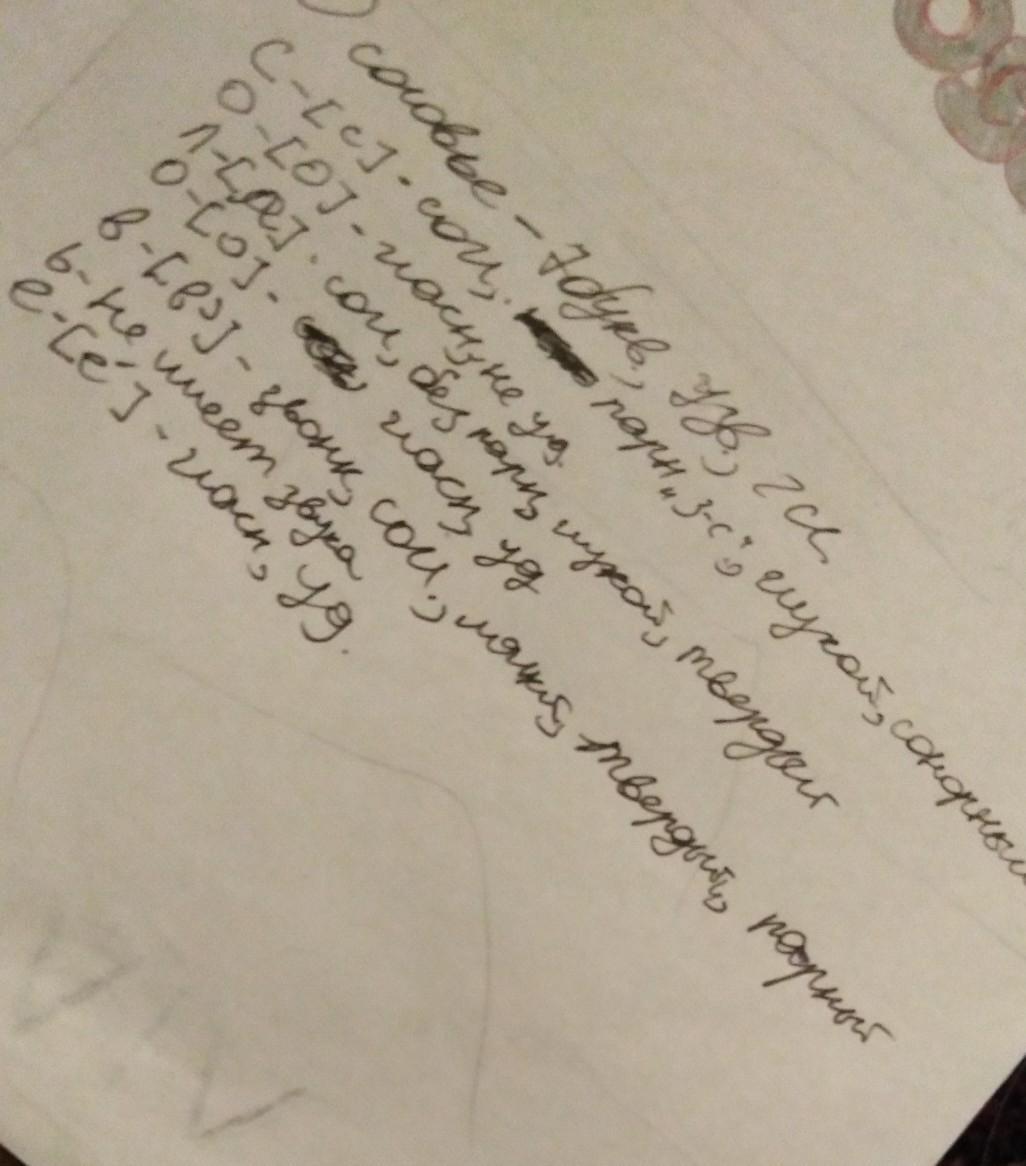 словье - 7букв, 7зв., 2сл
С-[с]. согл, парн „з-с“, глухой, сонорный
О-[О]-гласн, не уд.
Л-[л]. согл, без парн, глухой, твердый
О-[о]- гласн, уд
в-[в]- звонк, согл., мягкий, твердый, парный
ь-не имеет звука
е-[е́]-гласн, уд.